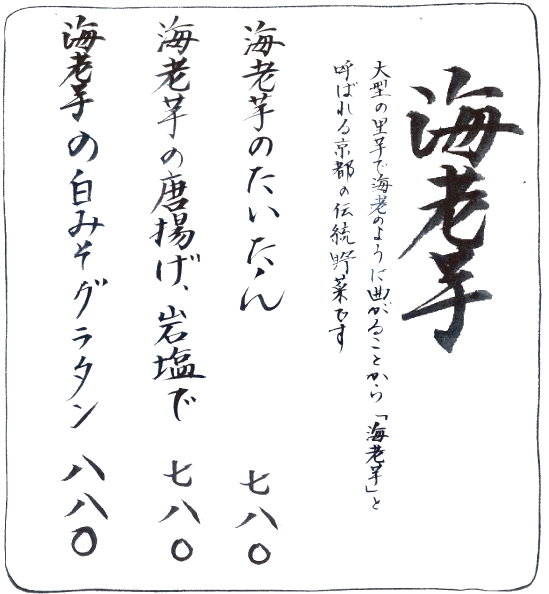 海老芋
大型の里芋で海老のように曲がることから「海老芋」と
呼ばれる京都の伝統野菜です
海老芋のたいたん 七八〇
海老芋の唐揚げ、岩塩で 七八〇
海老芋の白みそグラタン 八八〇